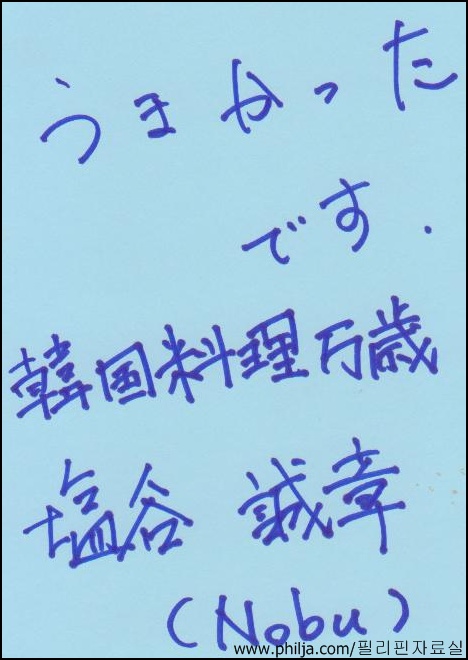 うまかった
です.
韓国料理万歳
塩谷 誠章
(Nobu)
www.philja.com/필리핀자료실